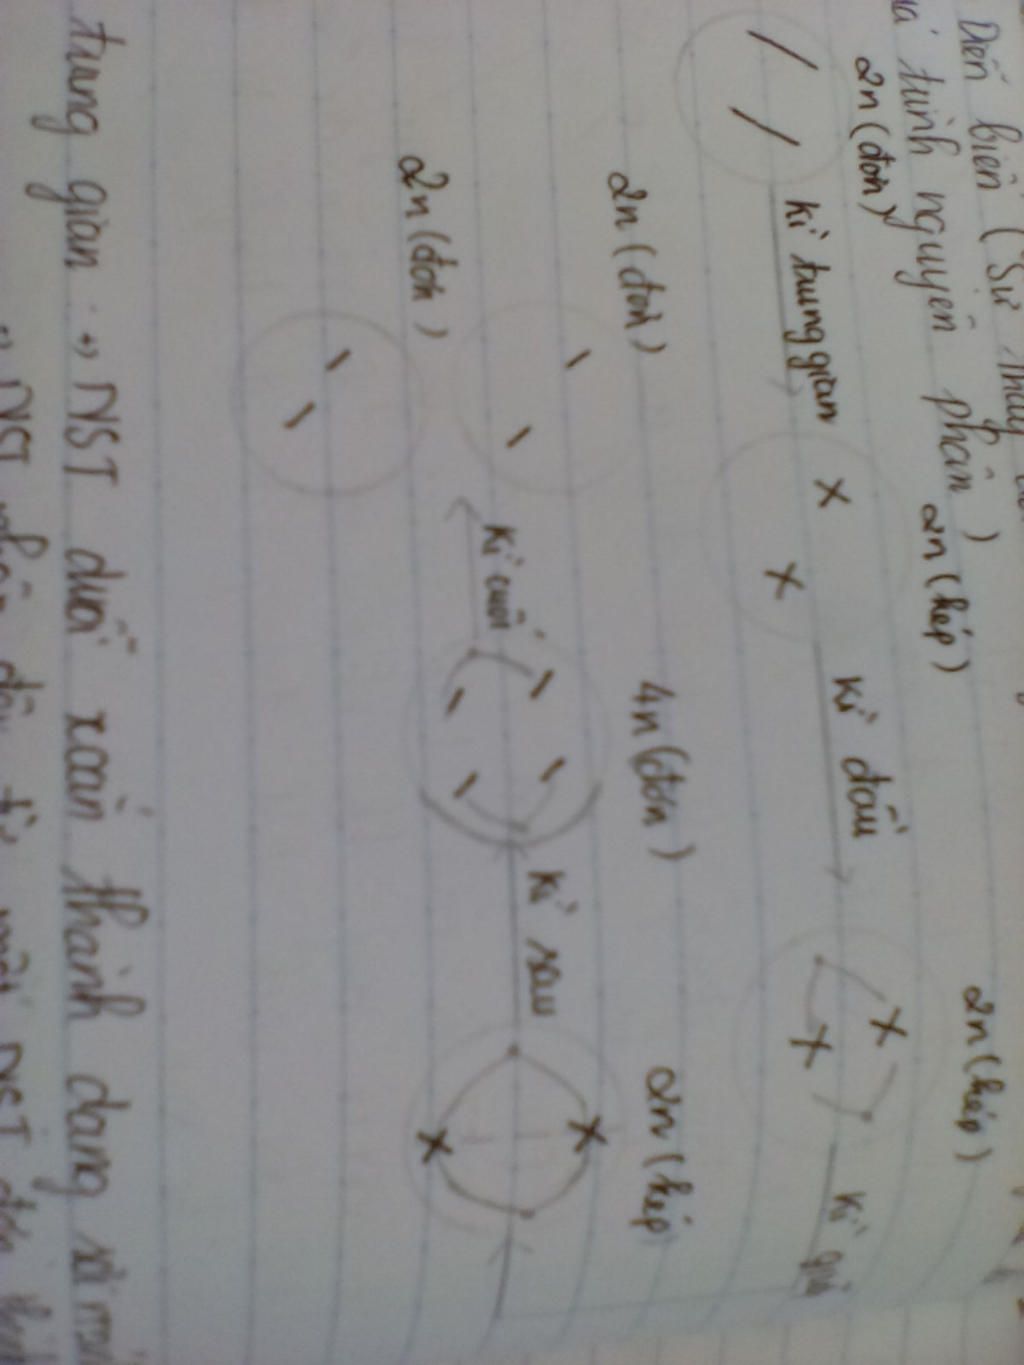 Diễn biến (Sự thay
quá trình nguyên phân)
2n (đơn)
2n (kép)
2n (kép)
kì trung gian
kì đầu
kì giữa
2n (đơn)
4n (đơn)
2n (kép)
kì cuối
kì sau
2n (đơn)
trung gian : + NST duỗi xoắn thành dạng sợi mảnh
+ NST nhân đôi từ một NST đơn thành